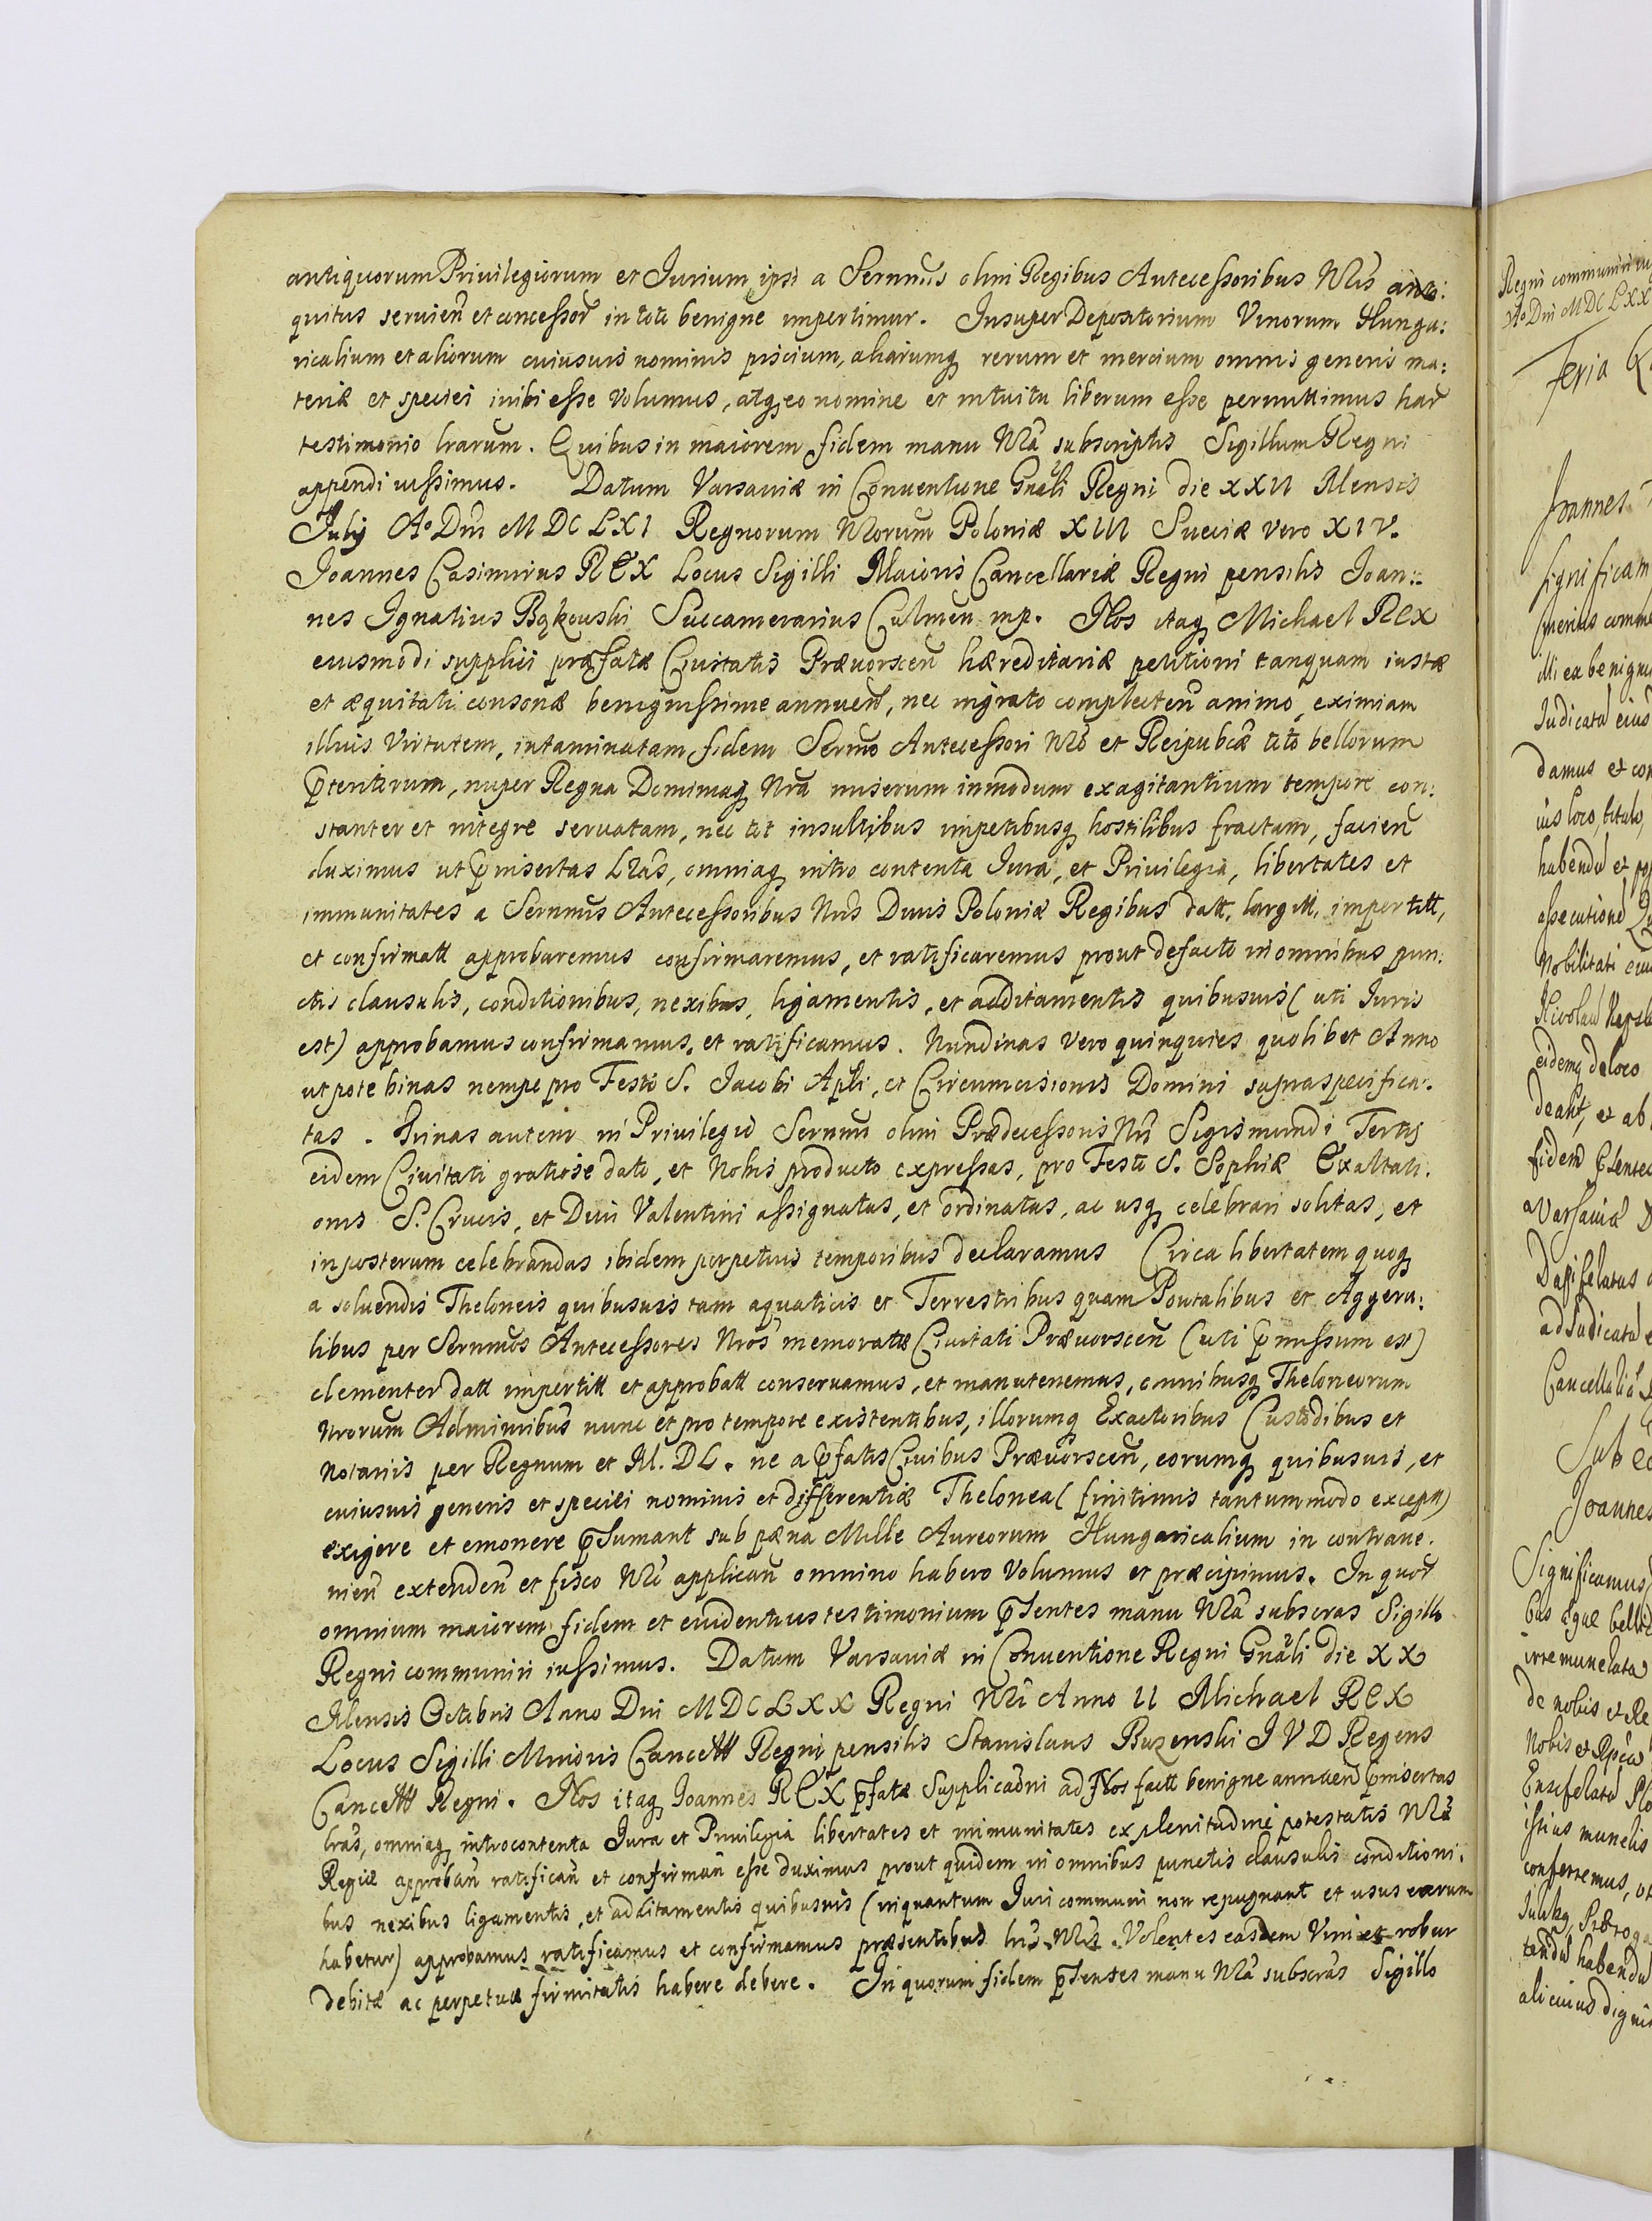 antiquorum Privilegiorum et Jurium ipsi a Sernmis olim Regibus Antecessoribus Nris anti:
quitus servien̄ et concessor̄ in toto benigne impertimur. Insuper Depositorium Vinorum Hunga:
ricalium et aliorum cuiusvis nominis piscium, aliarumq rerum et mercium omnis generis ma:
teriæ et speciei inibi esse volumus, atq eo nomine et intuitu liberum esse permittimus har̄
testimonio lrarum. Quibus in maiorem fidem manu Nrā subscriptis Sigillum Regni
appendi iussimus. Datum Varsaviæ in Conventione Gnāli Regni die XXII Mensis
Julij Ao Dni MDCLXI Regnorum Nrorum Poloniæ XIII Sueciæ vero XIV.
Joannes Casimirus REX Locus Sigilli Maioris Cancellariæ Regni pensilis Joan:
nes Ignatius Bąkowski Succamerarius Culmen mp. Nos itaq Michael REX
eiusmodi supplici præfatæ Civitatis Prævorscen̄ hæreditariæ petitioni tanquam iustæ
et æquitati consonæ benignissime annuen̄, nec ingrato complecten̄ animo, eximiam
illius Virtutem, intaminatam fidem Sermo Antecessori Nrō et Reipubcæ titō bellorum
p̄teritorum, nuper Regna Dominiaq Nrā miserum inmodum exagitantium tempore con:
stanter et integre servatam, nec tot insultibus impetibusq hostilibus fractam, facien̄
duximus ut p̄insertas Lrās, omniaq intro contenta Jura, et Privilegia, libertates et
immunitates a Sernmis Antecessoribus Nris Divis Poloniæ Regibus datt, largitt, impertitt,
et confirmatt approbaremus confirmaremus, et ratificaremus prout defacto in omnibus pun:
ctis clausulis, conditionibus, nexibus, ligamentis, et additamentis quibusvis (uti Juris
est) approbamus confirmamus, et ratificamus. Nundinas vero quinquies quolibet Anno
utpote binas nempe pro Festo S. Jacobi Apli, et Circumcisionis Domini supra specifica:
tas. Trinas autem in Privilegio Sernmi olim Prædecessoris Nri Sigismundi Tertij
eidem Civitati gratiose dato, et Nobis producto expressas, pro Festo S. Sophiæ Exaltati:
onis S. Crucis, et Divi Valentini assignatas, et ordinatas, ac usq celebrari solitas, et
in posterum celebrandas ibidem perpetuis temporibus declaramus Circa libertatem quoq
a solvendis Theloneis quibusvis tam aquaticis et Terrestribus quam Pontalibus et Aggera:
libus per Sernmos Antecessores Nros memoratæ Civitati Prævorscen̄ (uti p̄missum est)
clementer datt impertitt et approbatt conservamus, et manutenemus, omnibusq Theloneorum
Nrorum Adminribus nunc et pro tempore existentibus, illorumq Exactoribus Custodibus et
Notariis per Regnum et M. DL. ne a p̄fatis Civibus Prævorscen̄, eorumq quibusvis, et
cuiusvis generis et speciei nominis et differentiæ Thelonea (finitimis tantummodo exceptt)
exigere et emonere p̄sumant sub pæna Mille Aureorum Hungaricalium in contrave:
nien̄ extenden̄ et fisco Nro applican̄ omnino habero Volumus et præcipimus. In quor̄
omnium maiorem fidem et evidentius testimonium p̄sentes manu Nrā subscras Sigillo
Regni communiri iussimus. Datum Varsaviæ in Conventione Regni Gnāli die XX
Mensis Octobris Anno Dni MDCLXX Regni Nri Anno II Michael REX
Locus Sigilli Minioris Cancett Regni pensilis Stanislaus Buzenski J V D Regens
Cancett Regni. Nos itaq Joannes REX p̄fatæ Supplicaōni ad Nos fatt benigne annuen̄ p̄insertas
lras, omniaq introcontenta Jura et Privilegia libertates et immunitates ex plenitudine potestatis Nræ
Regiæ approban̄ ratifican̄ et confirman̄ esse duximus prout quidem in omnibus punctis clausulis conditioni:
bus nexibus ligamentis, et additamentis quibusvis (inquantum Juri communi non repugnant et usus earum
habetur) approbamus ratificamus et confirmamus præsentibus lris Nris. Volentes easdem Vim et robur
debitæ ac perpetuæ firmitatis habere debere. In quorum fidem p̄sentes manu Nrā subscras Sigillo
Regni communiri
Ao Dni MDCLXX
Feria
Joannes
significam
meritis comme
illi ea benigni
Judicatu eius
damus et con
ius loco, titulo,
habendu et
assecutione
Nobilitati
Nicolau
eidemq de loco
deant, et ab
fidem p̄sentes
Varsaviæ D
Dapiferatus
adiudicatu
Cancellaria
Sub
Joannes
Significamus
irremunerata
de nobis et Re
Nobis et Rpca
Ensiferatu
istius muneris
conferremus,
tendu habendu
alicuius digni